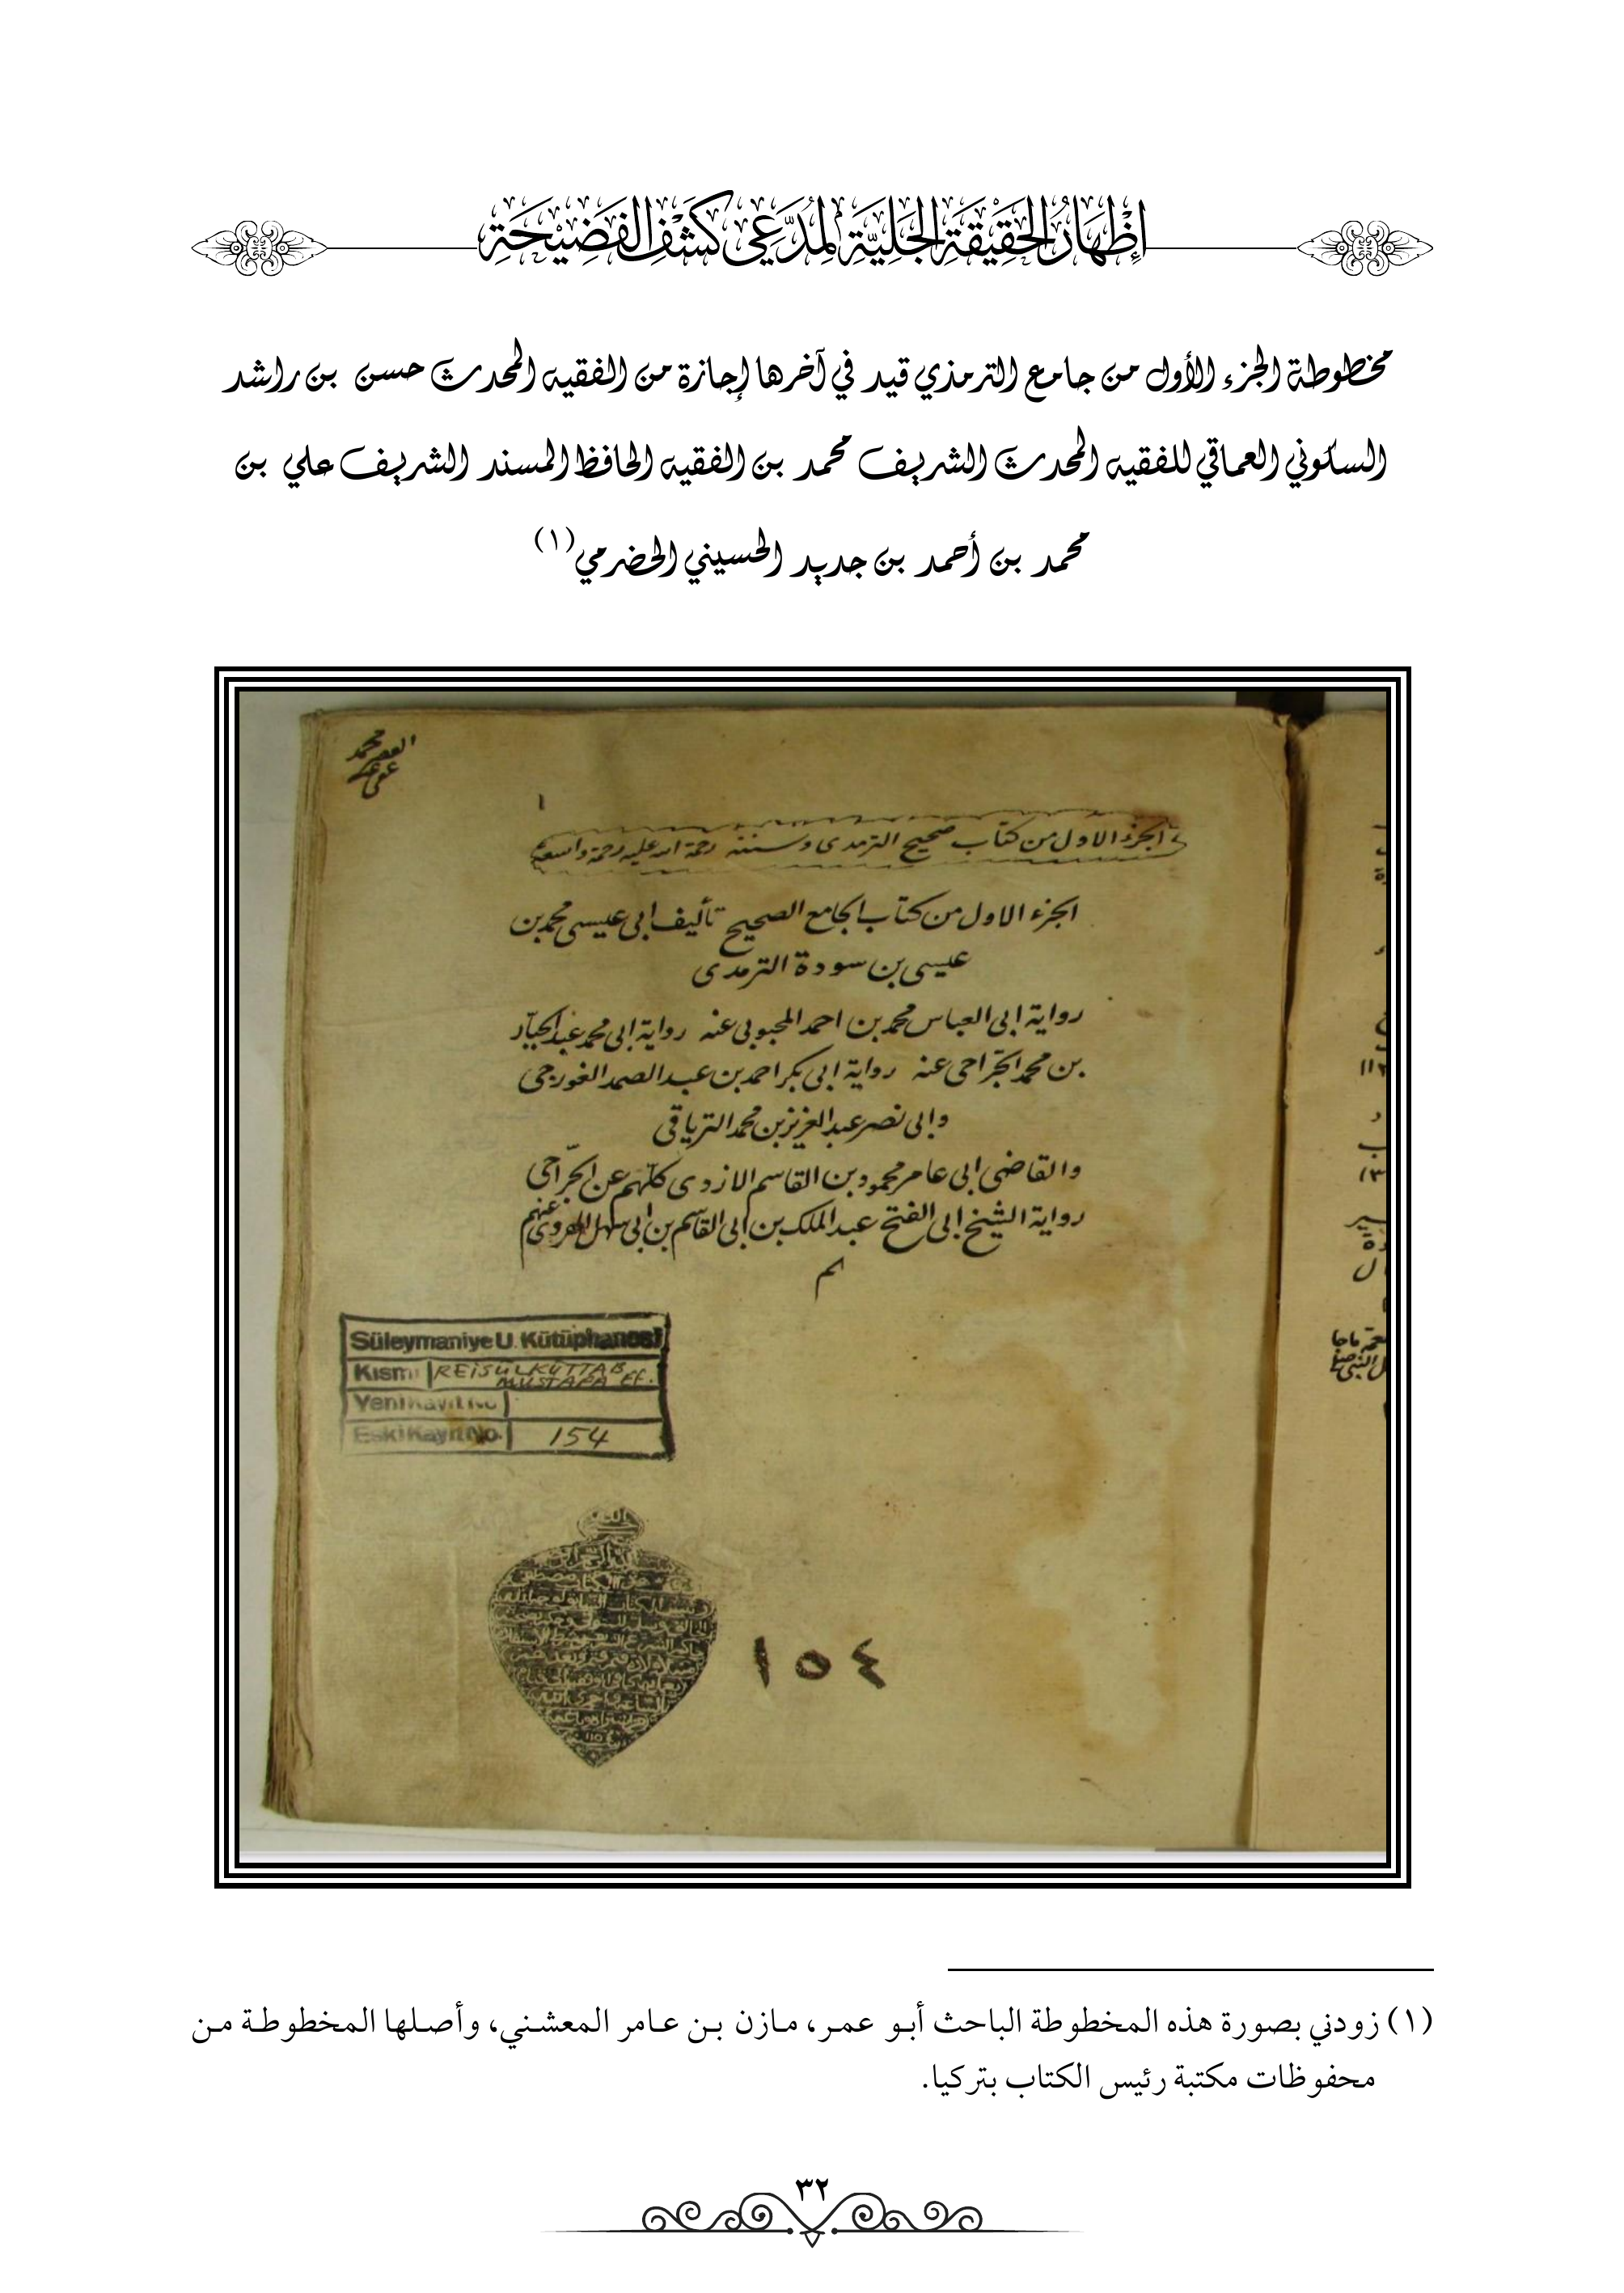 إِظْهَارُ الحَقِيْقَةِ الجَلِيَّةِ لِمُدَّعِي كَشْفِ الفَضِيْحَةِ
مخطوطة الجزء الأول من جامع الترمذي قيد في آخرها إجازة من الفقيه المحدث حسن بن راشد
السكوني العماقي للفقيه المحدث الشريف محمد بن الفقيه الحافظ المسند الشريف علي بن
محمد بن أحمد بن جديد الحسيني الحضرمي(١)
الجزء الاول من كتاب صحيح الترمدى وسننه رحمة الله عليه رحمة واسعة
الجزء الاول من كتاب الجامع الصحيح تأليف ابى عيسى محمد بن
عيسى بن سودة الترمدى
رواية ابى العباس محمد بن احمد المحبوبى عنه رواية ابى محمد عبد الجبار
بن محمد الجراحى عنه رواية ابى بكر احمد بن عبد الصمد الغورجى
وابى نصر عبد العزيز بن محمد الترياقى
والقاضى ابى عامر محمود بن القاسم الازدى كلهم عن الجراحى
رواية الشيخ ابى الفتح عبد الملك بن ابى القاسم بن ابى سهل الهروى عنهم
Süleymaniye U. Kütüphanesi
Kısmı REİSÜLKÜTTAB
MUSTAFA Ef.
Yeni Kayıt No
Eski Kayıt No. 154
١٥٤
(١) زودني بصورة هذه المخطوطة الباحث أبو عمر، مازن بن عامر المعشني، وأصلها المخطوطة من
محفوظات مكتبة رئيس الكتاب بتركيا.
٣٢